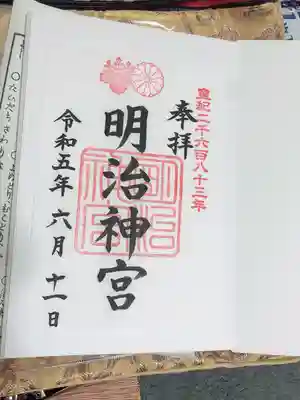 皇紀二千六百八十三年
奉拝
明治神宮
明治神宮
令和五年六月十一日